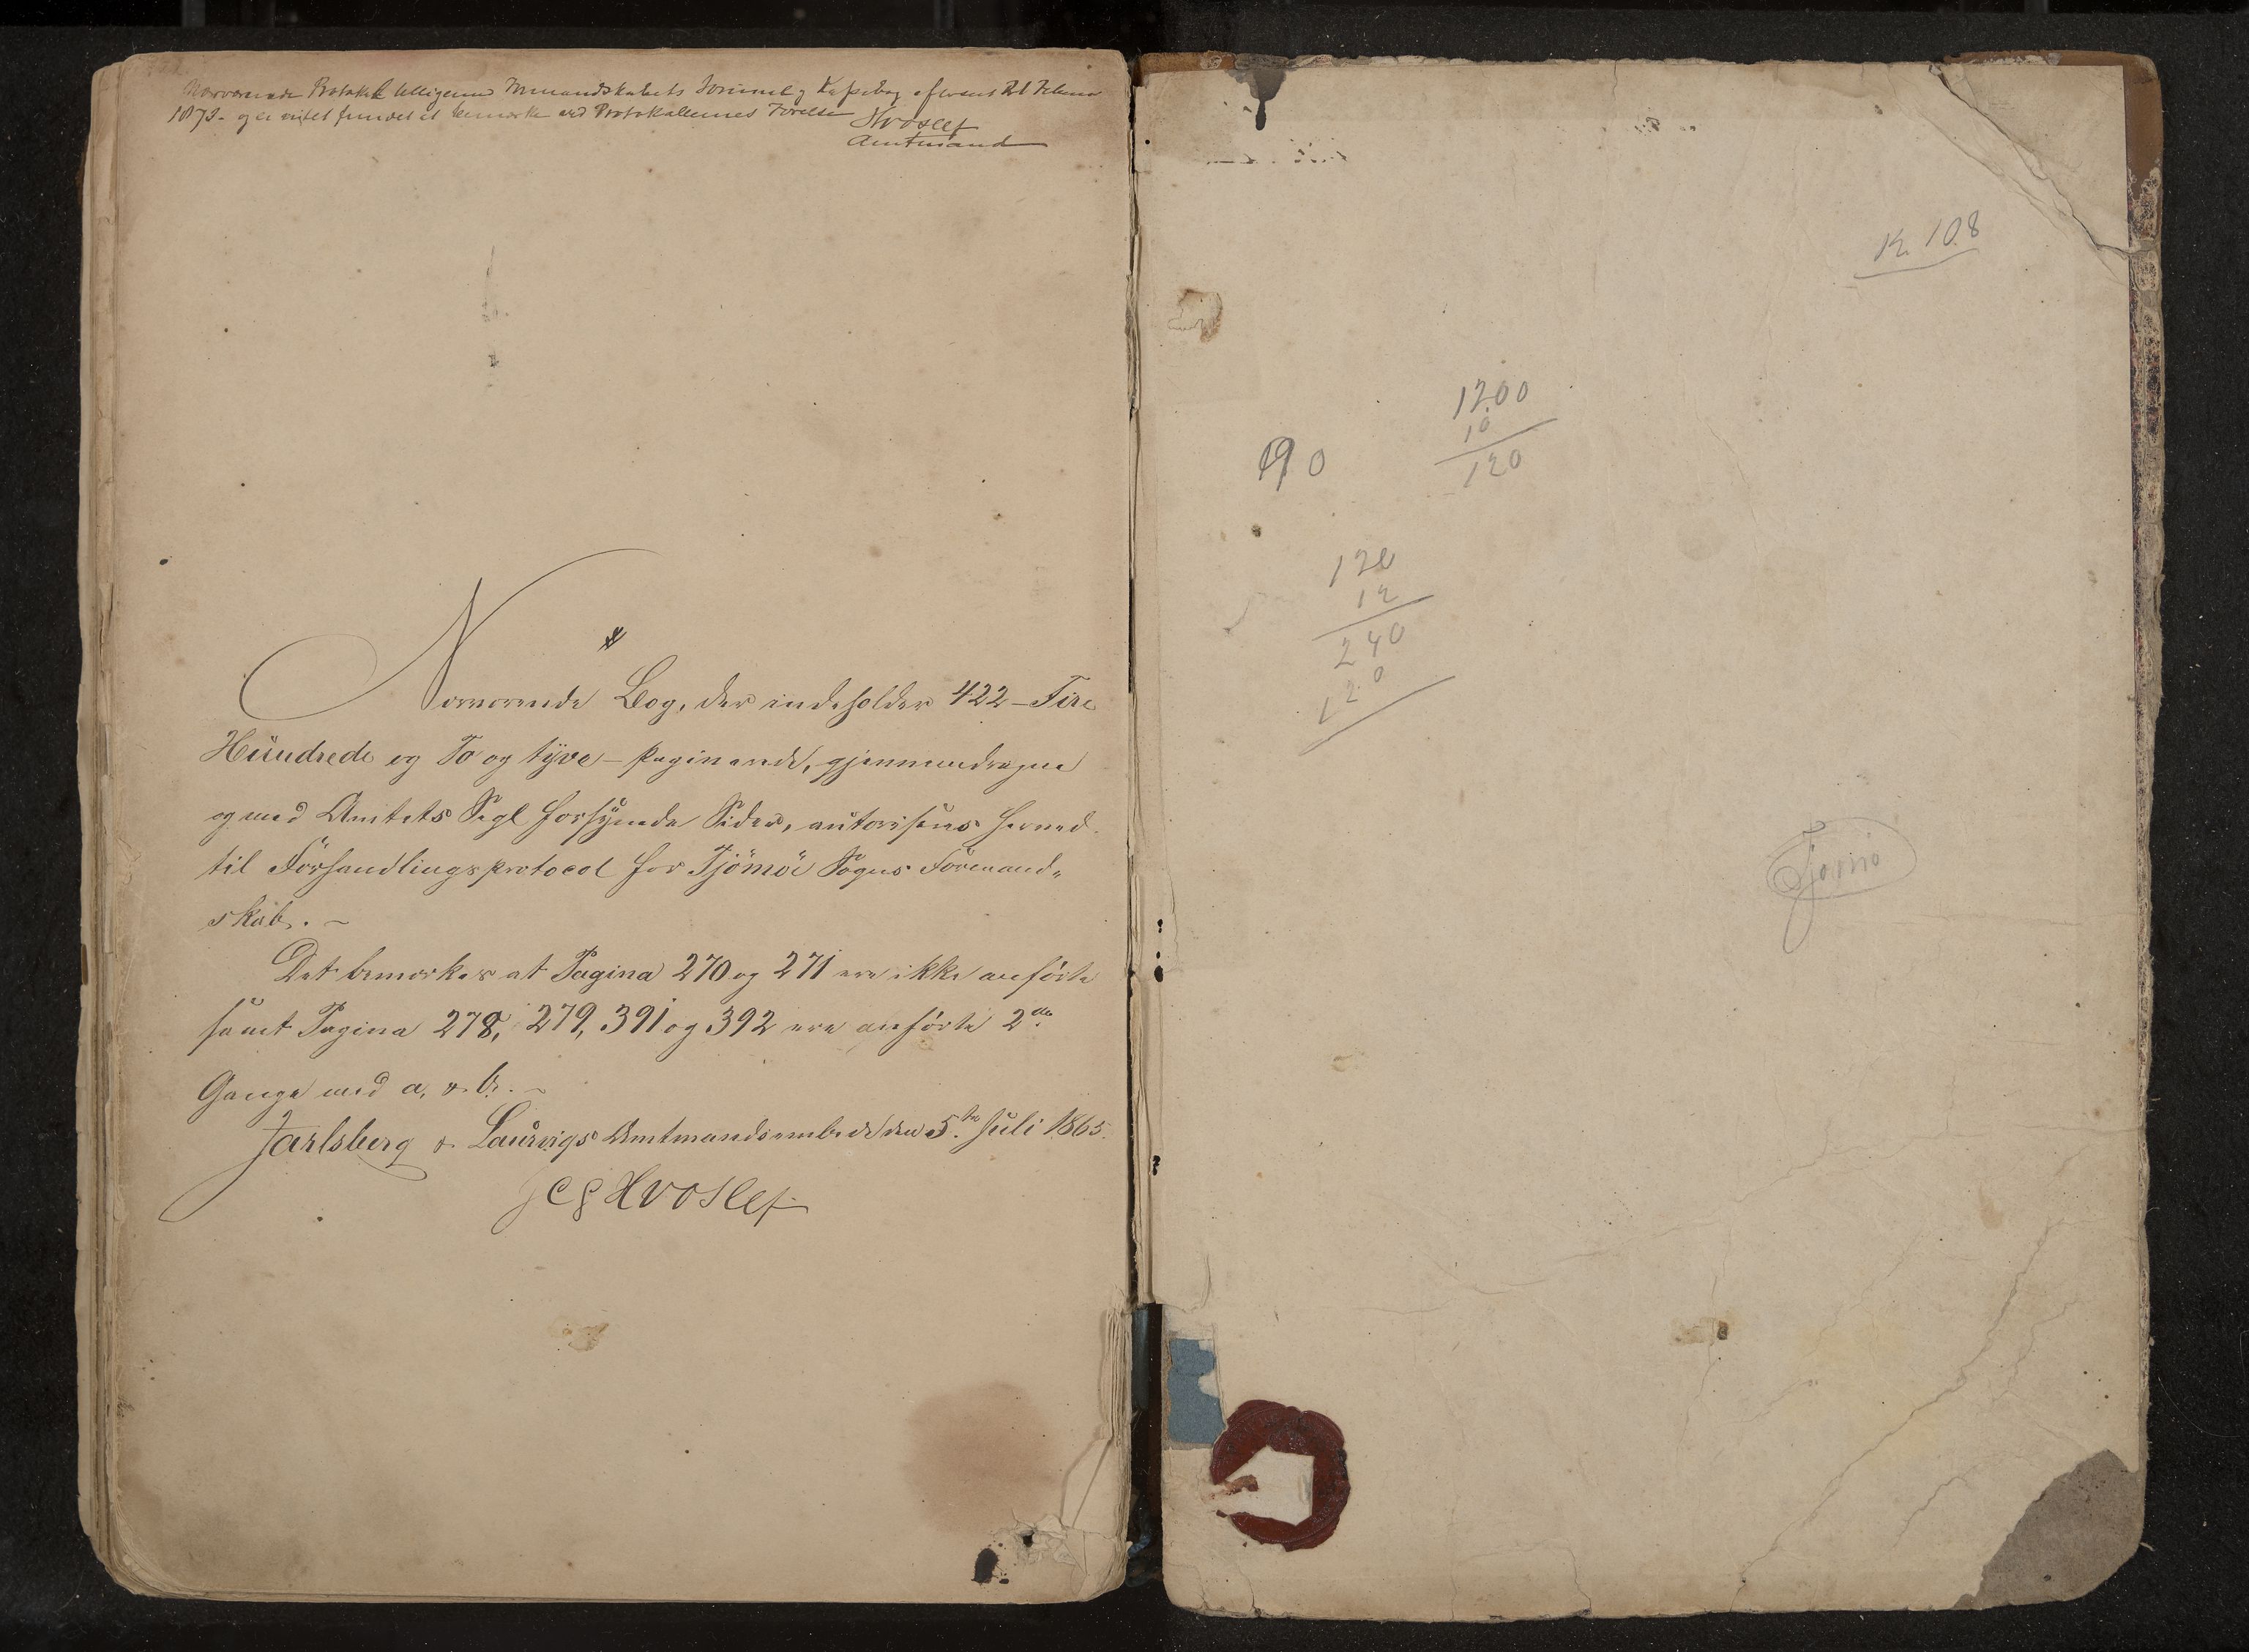 Nærværende Protokol tilligemed Formandskabets Journal og Kassebog efterseet 21 Februar
1873 - og er intet fundet at bemærke ved Protokollernes Førelse
Hvoslef
Amtmand
Nærværende Bog, der indeholder 422 - Fire
Hundrede og To og tyve - paginerede, gjennemdragne
og med Amtets Segl forsynede Sider, autoriseres herved
til Forhandlingsprotocol for Tjömöe Sogns Formand„
skab. -
Det bemærkes at Pagina 270 og 271 ere ikke anførte
samt Pagina 278, 279, 391 og 392 ere anførte 2de
Gange med a. & b. -
Jarlsberg & Laurvigs Amtmandsembede den 5.te Juli 1865.
Hvoslef
K. 108
1200
10
120
190
120
12
240
120
Tjømø